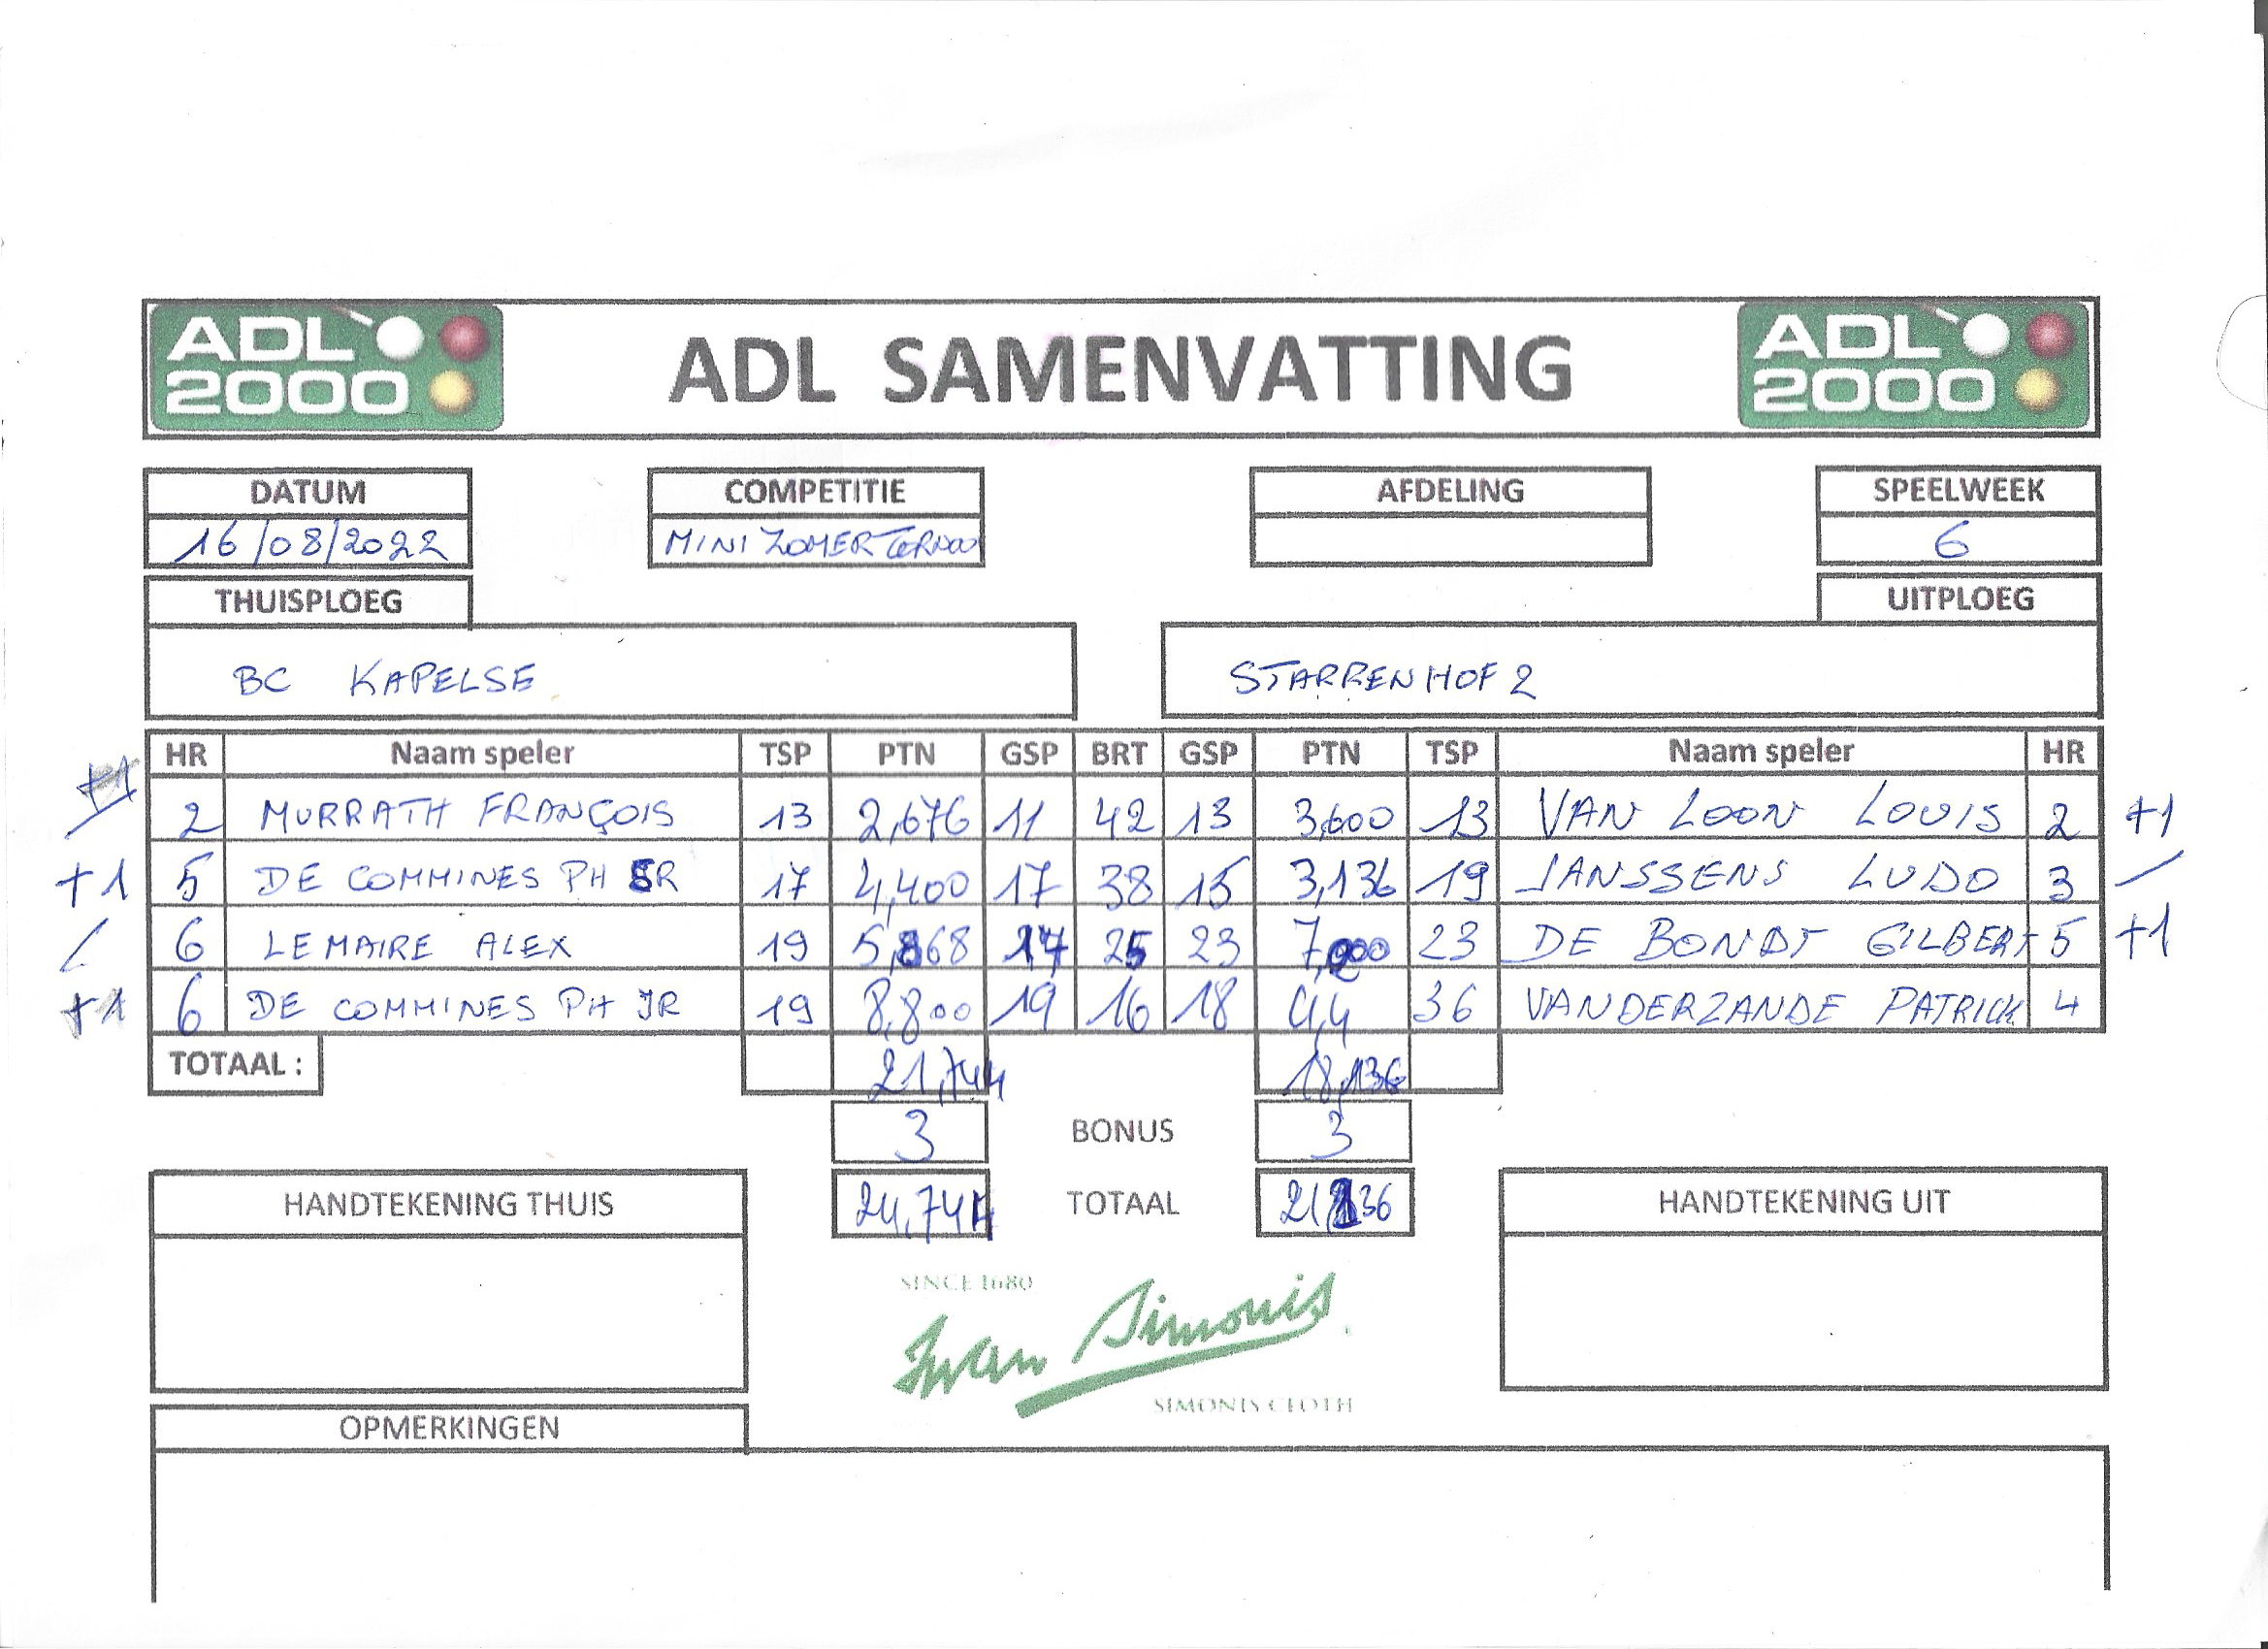 ADL 2000 ADL SAMENVATTING ADL 2000
DATUM COMPETITIE AFDELING SPEELWEEK
16/08/2022 MINI ZOMER 6
THUISPLOEG UITPLOEG
BC KAPELSE STARRENHOF 2
HR Naam speler TSP PTN GSP BRT GSP PTN TSP Naam speler HR
2 MURRATH FRANÇOIS 13 2,676 11 42 13 3,600 13 VAN LOON LOUIS 2 +1
+1 5 DE COMMINES PH SR 17 4,400 17 38 15 3,136 19 JANSSENS LUDO 3 -
6 LEMAIRE ALEX 19 5,868 17 25 23 7,000 23 DE BONDT GILBERT 5 +1
+1 6 DE COMMINES PH JR 19 8,800 19 16 18 4,4 36 VANDERZANDE PATRICK 4
TOTAAL : 21,744 18,136
3 BONUS 3
HANDTEKENING THUIS 24,744 TOTAAL 21,136 HANDTEKENING UIT
SINCE 1680
Iwan Simonis
SIMONIS CLOTH
OPMERKINGEN